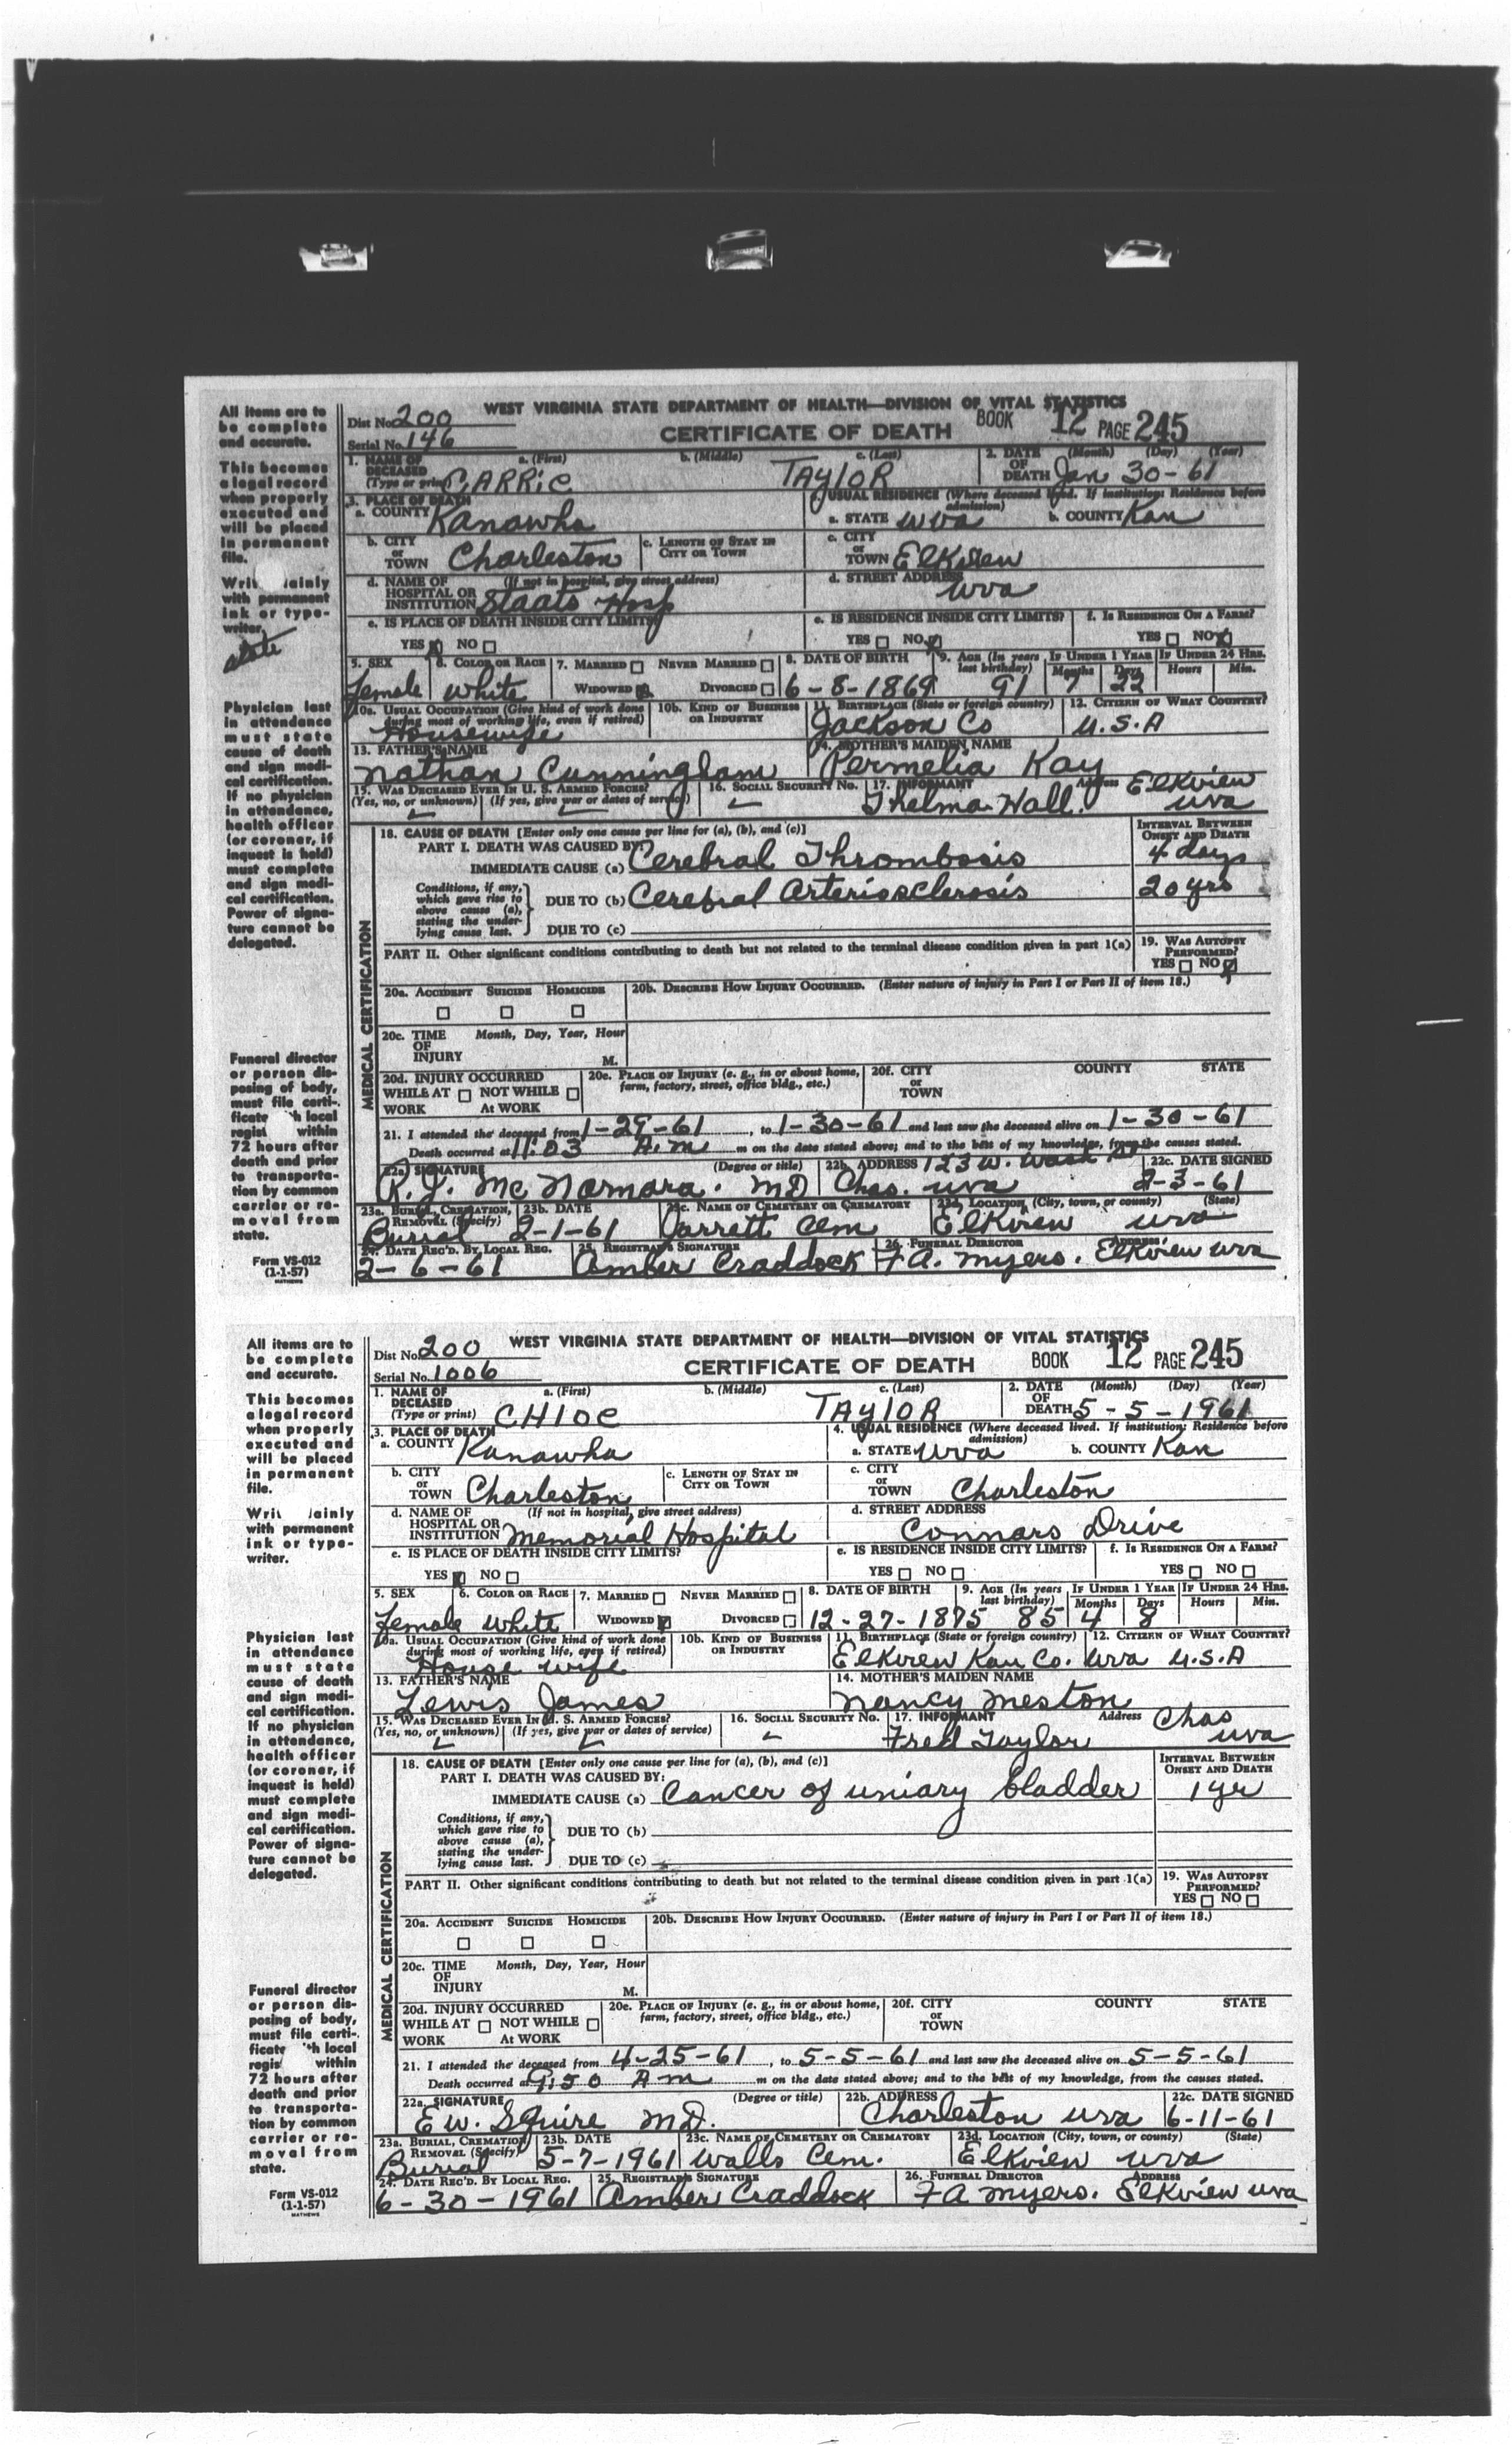 WEST VIRGINIA STATE DEPARTMENT OF HEALTH—DIVISION OF VITAL STATISTICS
Dist No. 200
CERTIFICATE OF DEATH BOOK 12 PAGE 245
Serial No. 146
All items are to
be complete
and accurate.
This becomes
a legal record
when properly
executed and
will be placed
in permanent
file.
Writ lainly
with permanent
ink or type-
writer.
state
Physician last
in attendance
must state
cause of death
and sign medi-
cal certification.
If no physician
in attendance,
health officer
(or coroner, if
inquest is held)
must complete
and sign medi-
cal certification.
Power of signa-
ture cannot be
delegated.
Funeral director
or person dis-
posing of body,
must file certi-
ficate h local
regist within
72 hours after
death and prior
to transporta-
tion by common
carrier or re-
moval from
state.
Form VS-012
(1-1-57)
MATHEWS
1. NAME OF DECEASED (Type or print) a. (First) b. (Middle) c. (Last) 2. DATE OF DEATH (Month) (Day) (Year)
CARRIE TAYLOR Jan 30-61
3. PLACE OF DEATH 4. USUAL RESIDENCE (Where deceased lived. If institution: Residence before admission)
a. COUNTY Kanawha a. STATE WVa b. COUNTY Kan
b. CITY or TOWN Charleston c. LENGTH OF STAY IN CITY OR TOWN c. CITY or TOWN Elkview
d. NAME OF HOSPITAL OR INSTITUTION (If not in hospital, give street address) Staats Hosp d. STREET ADDRESS WVa
e. IS PLACE OF DEATH INSIDE CITY LIMITS? e. IS RESIDENCE INSIDE CITY LIMITS? f. IS RESIDENCE ON A FARM?
YES NO YES NO YES NO
5. SEX 6. COLOR OR RACE 7. MARRIED NEVER MARRIED 8. DATE OF BIRTH 9. AGE (In years last birthday) IF UNDER 1 YEAR IF UNDER 24 HRS.
Months Days Hours Min.
Female White WIDOWED DIVORCED 6-8-1869 91 7 22
10a. USUAL OCCUPATION (Give kind of work done during most of working life, even if retired) 10b. KIND OF BUSINESS OR INDUSTRY 11. BIRTHPLACE (State or foreign country) 12. CITIZEN OF WHAT COUNTRY?
Housewife Jackson Co U.S.A
13. FATHER'S NAME 14. MOTHER'S MAIDEN NAME
Nathan Cunningham Permelia Kay
15. WAS DECEASED EVER IN U. S. ARMED FORCES? 16. SOCIAL SECURITY No. 17. INFORMANT Address Elkview
(Yes, no, or unknown) (If yes, give war or dates of service) Thelma Wall. WVa
MEDICAL CERTIFICATION
18. CAUSE OF DEATH [Enter only one cause per line for (a), (b), and (c)] INTERVAL BETWEEN ONSET AND DEATH
PART I. DEATH WAS CAUSED BY:
IMMEDIATE CAUSE (a) Cerebral Thrombosis 4 days
Conditions, if any, which gave rise to above cause (a), stating the under-lying cause last.
DUE TO (b) Cerebral Arteriosclerosis 20 yrs
DUE TO (c)
PART II. Other significant conditions contributing to death but not related to the terminal disease condition given in part 1(a) 19. WAS AUTOPSY PERFORMED?
YES NO
20a. ACCIDENT SUICIDE HOMICIDE 20b. DESCRIBE HOW INJURY OCCURRED. (Enter nature of injury in Part I or Part II of item 18.)
20c. TIME OF INJURY Month, Day, Year, Hour M.
20d. INJURY OCCURRED WHILE AT WORK NOT WHILE AT WORK 20e. PLACE OF INJURY (e. g., in or about home, farm, factory, street, office bldg., etc.) 20f. CITY or TOWN COUNTY STATE
21. I attended the deceased from 1-29-61, to 1-30-61 and last saw the deceased alive on 1-30-61
Death occurred at 11:03 A.m m on the date stated above; and to the best of my knowledge, from the causes stated.
22a. SIGNATURE (Degree or title) 22b. ADDRESS 123 W. Wash St 22c. DATE SIGNED
R. J. McNamara. MD Chas. WVa 2-3-61
23a. BURIAL, CREMATION, REMOVAL (Specify) 23b. DATE 23c. NAME OF CEMETERY OR CREMATORY 23d. LOCATION (City, town, or county) (State)
Burial 2-1-61 Jarrett Cem Elkview WVa
24. DATE REC'D. BY LOCAL REG. 25. REGISTRAR'S SIGNATURE 26. FUNERAL DIRECTOR ADDRESS
2-6-61 Amber Craddock F A. Myers. Elkview WVa
WEST VIRGINIA STATE DEPARTMENT OF HEALTH—DIVISION OF VITAL STATISTICS
Dist No. 200
CERTIFICATE OF DEATH BOOK 12 PAGE 245
Serial No. 1006
All items are to
be complete
and accurate.
This becomes
a legal record
when properly
executed and
will be placed
in permanent
file.
Writ lainly
with permanent
ink or type-
writer.
Physician last
in attendance
must state
cause of death
and sign medi-
cal certification.
If no physician
in attendance,
health officer
(or coroner, if
inquest is held)
must complete
and sign medi-
cal certification.
Power of signa-
ture cannot be
delegated.
Funeral director
or person dis-
posing of body,
must file certi-
ficate h local
regis within
72 hours after
death and prior
to transporta-
tion by common
carrier or re-
moval from
state.
Form VS-012
(1-1-57)
MATHEWS
1. NAME OF DECEASED (Type or print) a. (First) b. (Middle) c. (Last) 2. DATE OF DEATH (Month) (Day) (Year)
CHLOE TAYLOR 5-5-1961
3. PLACE OF DEATH 4. USUAL RESIDENCE (Where deceased lived. If institution: Residence before admission)
a. COUNTY Kanawha a. STATE WVa b. COUNTY Kan
b. CITY or TOWN Charleston c. LENGTH OF STAY IN CITY OR TOWN c. CITY or TOWN Charleston
d. NAME OF HOSPITAL OR INSTITUTION (If not in hospital, give street address) Memorial Hospital d. STREET ADDRESS Connars Drive
e. IS PLACE OF DEATH INSIDE CITY LIMITS? e. IS RESIDENCE INSIDE CITY LIMITS? f. IS RESIDENCE ON A FARM?
YES NO YES NO YES NO
5. SEX 6. COLOR OR RACE 7. MARRIED NEVER MARRIED 8. DATE OF BIRTH 9. AGE (In years last birthday) IF UNDER 1 YEAR IF UNDER 24 HRS.
Months Days Hours Min.
Female White WIDOWED DIVORCED 12-27-1875 85 4 8
10a. USUAL OCCUPATION (Give kind of work done during most of working life, even if retired) 10b. KIND OF BUSINESS OR INDUSTRY 11. BIRTHPLACE (State or foreign country) 12. CITIZEN OF WHAT COUNTRY?
House wife Elkview Kan Co. WVa U.S.A
13. FATHER'S NAME 14. MOTHER'S MAIDEN NAME
Lewis James Nancy Meston
15. WAS DECEASED EVER IN U. S. ARMED FORCES? 16. SOCIAL SECURITY No. 17. INFORMANT Address Chas
(Yes, no, or unknown) (If yes, give war or dates of service) Fred Taylor WVa
MEDICAL CERTIFICATION
18. CAUSE OF DEATH [Enter only one cause per line for (a), (b), and (c)] INTERVAL BETWEEN ONSET AND DEATH
PART I. DEATH WAS CAUSED BY:
IMMEDIATE CAUSE (a) Cancer of uniary bladder 1 yr
Conditions, if any, which gave rise to above cause (a), stating the under-lying cause last.
DUE TO (b)
DUE TO (c)
PART II. Other significant conditions contributing to death but not related to the terminal disease condition given in part 1(a) 19. WAS AUTOPSY PERFORMED?
YES NO
20a. ACCIDENT SUICIDE HOMICIDE 20b. DESCRIBE HOW INJURY OCCURRED. (Enter nature of injury in Part I or Part II of item 18.)
20c. TIME OF INJURY Month, Day, Year, Hour M.
20d. INJURY OCCURRED WHILE AT WORK NOT WHILE AT WORK 20e. PLACE OF INJURY (e. g., in or about home, farm, factory, street, office bldg., etc.) 20f. CITY or TOWN COUNTY STATE
21. I attended the deceased from 4-25-61, to 5-5-61 and last saw the deceased alive on 5-5-61
Death occurred at 9:50 Am m on the date stated above; and to the best of my knowledge, from the causes stated.
22a. SIGNATURE (Degree or title) 22b. ADDRESS 22c. DATE SIGNED
E W. Squire MD. Charleston WVa 6-11-61
23a. BURIAL, CREMATION, REMOVAL (Specify) 23b. DATE 23c. NAME OF CEMETERY OR CREMATORY 23d. LOCATION (City, town, or county) (State)
Burial 5-7-1961 Walls Cem. Elkview WVa
24. DATE REC'D. BY LOCAL REG. 25. REGISTRAR'S SIGNATURE 26. FUNERAL DIRECTOR ADDRESS
6-30-1961 Amber Craddock F A Myers. Elkview WVa